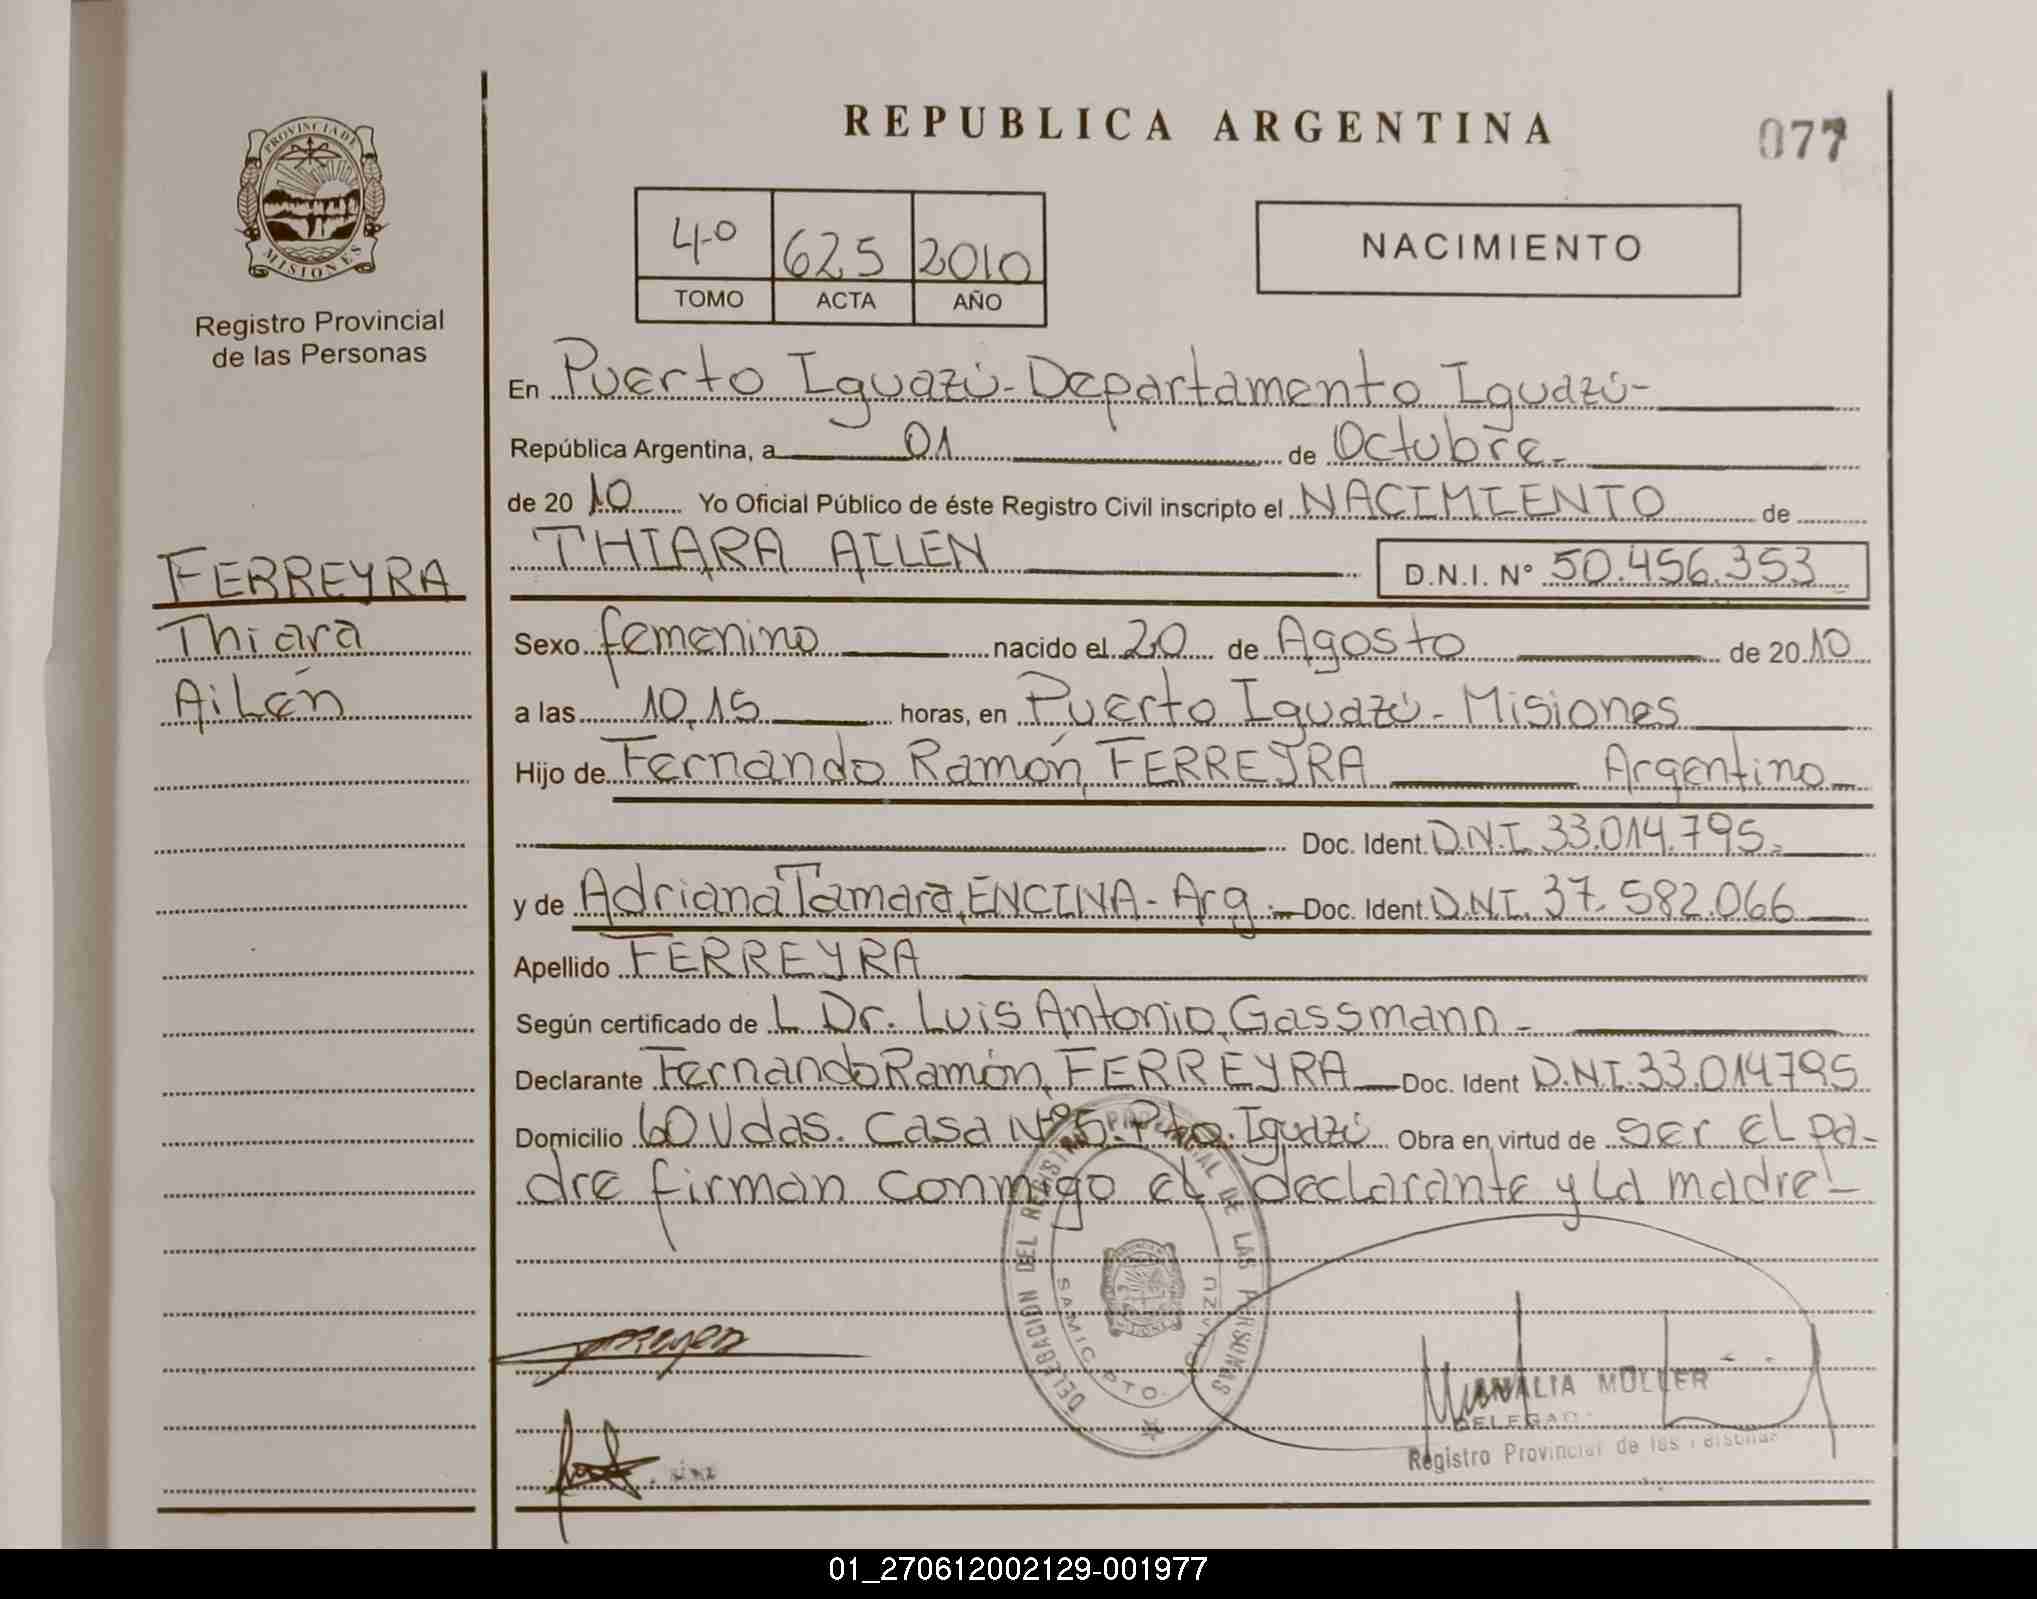 PROVINCIA DE
MISIONES
Registro Provincial
de las Personas
FERREYRA
Thiara
Ailén
REPUBLICA ARGENTINA
077
4º 625 2010
TOMO ACTA AÑO
NACIMIENTO
En Puerto Iguazú-Departamento Iguazú-
República Argentina, a 01 de Octubre-
de 20 10 Yo Oficial Público de éste Registro Civil inscripto el NACIMIENTO de
THIARA AILEN D.N.I. Nº 50.456.353
Sexo femenino nacido el 20 de Agosto de 2010
a las 10,15 horas, en Puerto Iguazú - Misiones
Hijo de Fernando Ramón, FERREYRA Argentino-
Doc. Ident. D.N.I. 33.014.795.-
y de Adriana Tamara, ENCINA - Arg.- Doc. Ident. D.N.I. 37.582.066
Apellido FERREYRA
Según certificado de L Dr. Luis Antonio, Gassmann -
Declarante Fernando Ramón, FERREYRA Doc. Ident D.N.I. 33.014795
Domicilio 60 Vdas. Casa Nº 5. Pto. Iguazú Obra en virtud de ser el pa-
dre firman conmigo el declarante y la madre!-
DELEGACION DEL REGISTRO PROVINCIAL DE LAS PERSONAS
PTO.
ANALIA MULLER
DELEGADA
Registro Provincial de las Personas
01_270612002129-001977